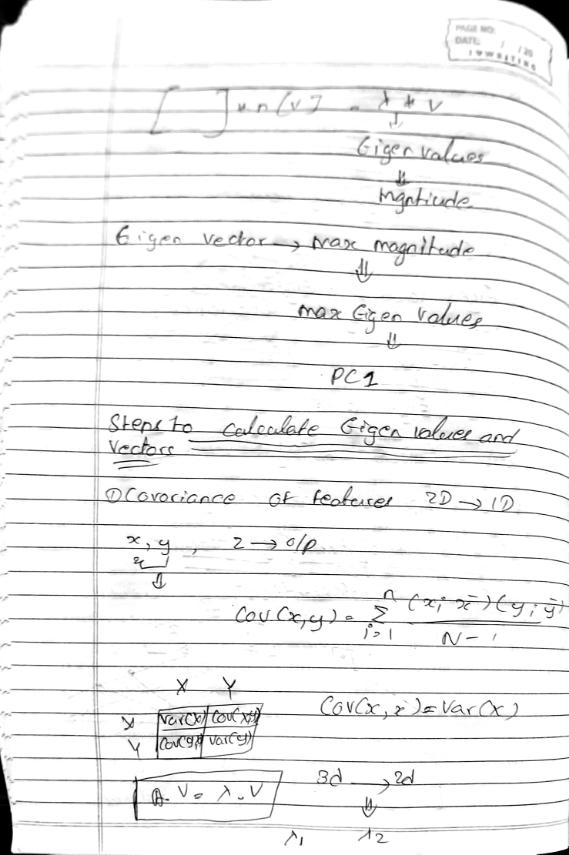 PAGE NO:
DATE: / /20
[ ] [v] = λ * v
↓
Eigen values
⇓
Mgntiude
Eigen vector → max magnitude
⇓
max Eigen values
⇓
PC1
Steps to calculate Eigen values and
Vectors
① Covariance of features 2D → 1D
x, y , z → o/p
⇓
Cov(x,y) = n Σ i=1 (xi - x̄)(yi - ȳ) / N-1
X Y
X Var(x) Cov(x,y)
Y Cov(y,x) Var(y)
Cov(x,x) = Var(x)
A. V = λ . V
3d → 2d
⇓
λ1 λ2